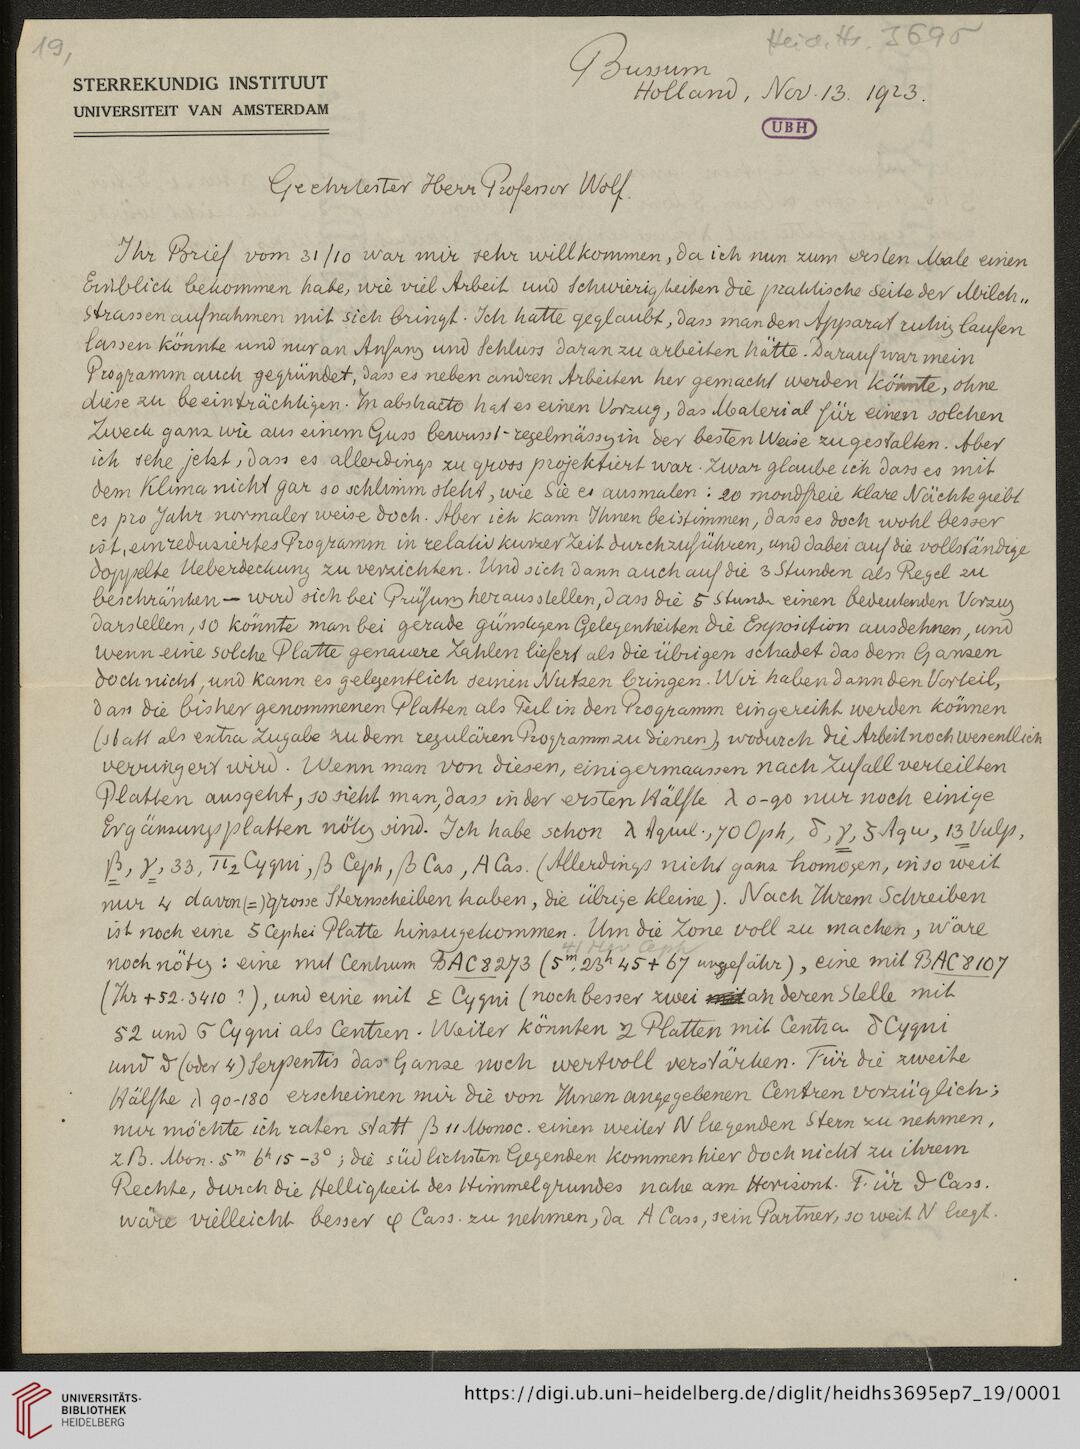 19,
Heid. Hs. 3695
STERREKUNDIG INSTITUUT
UNIVERSITEIT VAN AMSTERDAM
Bussum
Holland, Nov. 13. 1923.
UBH
Geehrtester Herr Professor Wolf.
Ihr Brief vom 31/10 war mir sehr willkommen, da ich nun zum ersten Male einen
Einblick bekommen habe, wie viel Arbeit und Schwierigkeiten die praktische Seite der Milch„
strassenaufnahmen mit sich bringt. Ich hatte geglaubt, dass man den Apparat ruhig laufen
lassen könnte und nur an Anfang und Schluss daran zu arbeiten hätte. Darauf war mein
Programm auch gegründet, dass es neben andren Arbeiten her gemacht werden könnte, ohne
diese zu beeinträchtigen. In abstracto hat es einen Vorzug, das Material für einen solchen
Zweck ganz wie aus einem Guss bewusst-regelmässig in der besten Weise zu gestalten. Aber
ich sehe jetzt, dass es allerdings zu gross projektiert war. Zwar glaube ich dass es mit
dem Klima nicht gar so schlimm steht, wie Sie es ausmalen: 20 mondfreie klare Nächte giebt
es pro Jahr normaler weise doch. Aber ich kann Ihnen beistimmen, dass es doch wohl besser
ist, ein reduziertes Programm in relativ kurzer Zeit durchzuführen, und dabei auf die vollständige
doppelte Ueberdeckung zu verzichten. Und sich dann auch auf die 3 Stunden als Regel zu
beschränken — wird sich bei Prüfung herausstellen, dass die 5 Stunde einen bedeutenden Vorzug
darstellen, so könnte man bei gerade günstigen Gelegenheiten die Exposition ausdehnen, und
wenn eine solche Platte genauere Zahlen liefert als die übrigen schadet das dem Ganzen
doch nicht, und kann es gelegentlich seinen Nutzen bringen. Wir haben dann den Vorteil,
dass die bisher genommenen Platten als Teil in den Programm eingereiht werden können
(statt als extra Zugabe zu dem regulären Programm zu dienen), wodurch die Arbeit noch wesentlich
verringert wird. Wenn man von diesen, einigermaassen nach Zufall verteilten
Platten ausgeht, so sieht man, dass in der ersten Hälfte λ 0-90 nur noch einige
Ergänzungsplatten nötig sind. Ich habe schon λ Aquil., 70 Oph, δ, γ, ζ Aqu, 13 Vulp,
β, γ, 33, π2 Cygni, β Ceph, β Cas, A Cas. (Allerdings nicht ganz homogen, in so weit
nur 4 davon (=) grosse Sternscheiben haben, die übrige kleine). Nach Ihrem Schreiben
ist noch eine δ Cephei Platte hinzugekommen. Um die Zone voll zu machen, wäre
41 Hev Ceph
noch nötig: eine mit Centrum BAC 8273 (5m. 23h 45 + 67 ungefähr), eine mit BAC 8107
(Ihr +52.3410 ?), und eine mit ε Cygni (noch besser zwei an deren Stelle mit
52 und σ Cygni als Centren. Weiter könnten 2 Platten mit Centra δ Cygni
und ϑ (oder 4) Serpentis das Ganze noch wertvoll verstärken. Für die zweite
Hälfte λ 90-180 erscheinen mir die von Ihnen angegebenen Centren vorzüglich;
nur möchte ich raten statt β 11 Monoc. einen weiter N liegenden Stern zu nehmen,
z B. Mon. 5m 6h 15 -3°; die südlichsten Gegenden kommen hier doch nicht zu ihrem
Rechte, durch die Helligkeit des Himmelgrundes nahe am Horizont. Für ϑ Cass.
wäre vielleicht besser φ Cass. zu nehmen, da A Cass, sein Partner, so weit N liegt.
UNIVERSITÄTS-
BIBLIOTHEK
HEIDELBERG
https://digi.ub.uni-heidelberg.de/diglit/heidhs3695ep7_19/0001